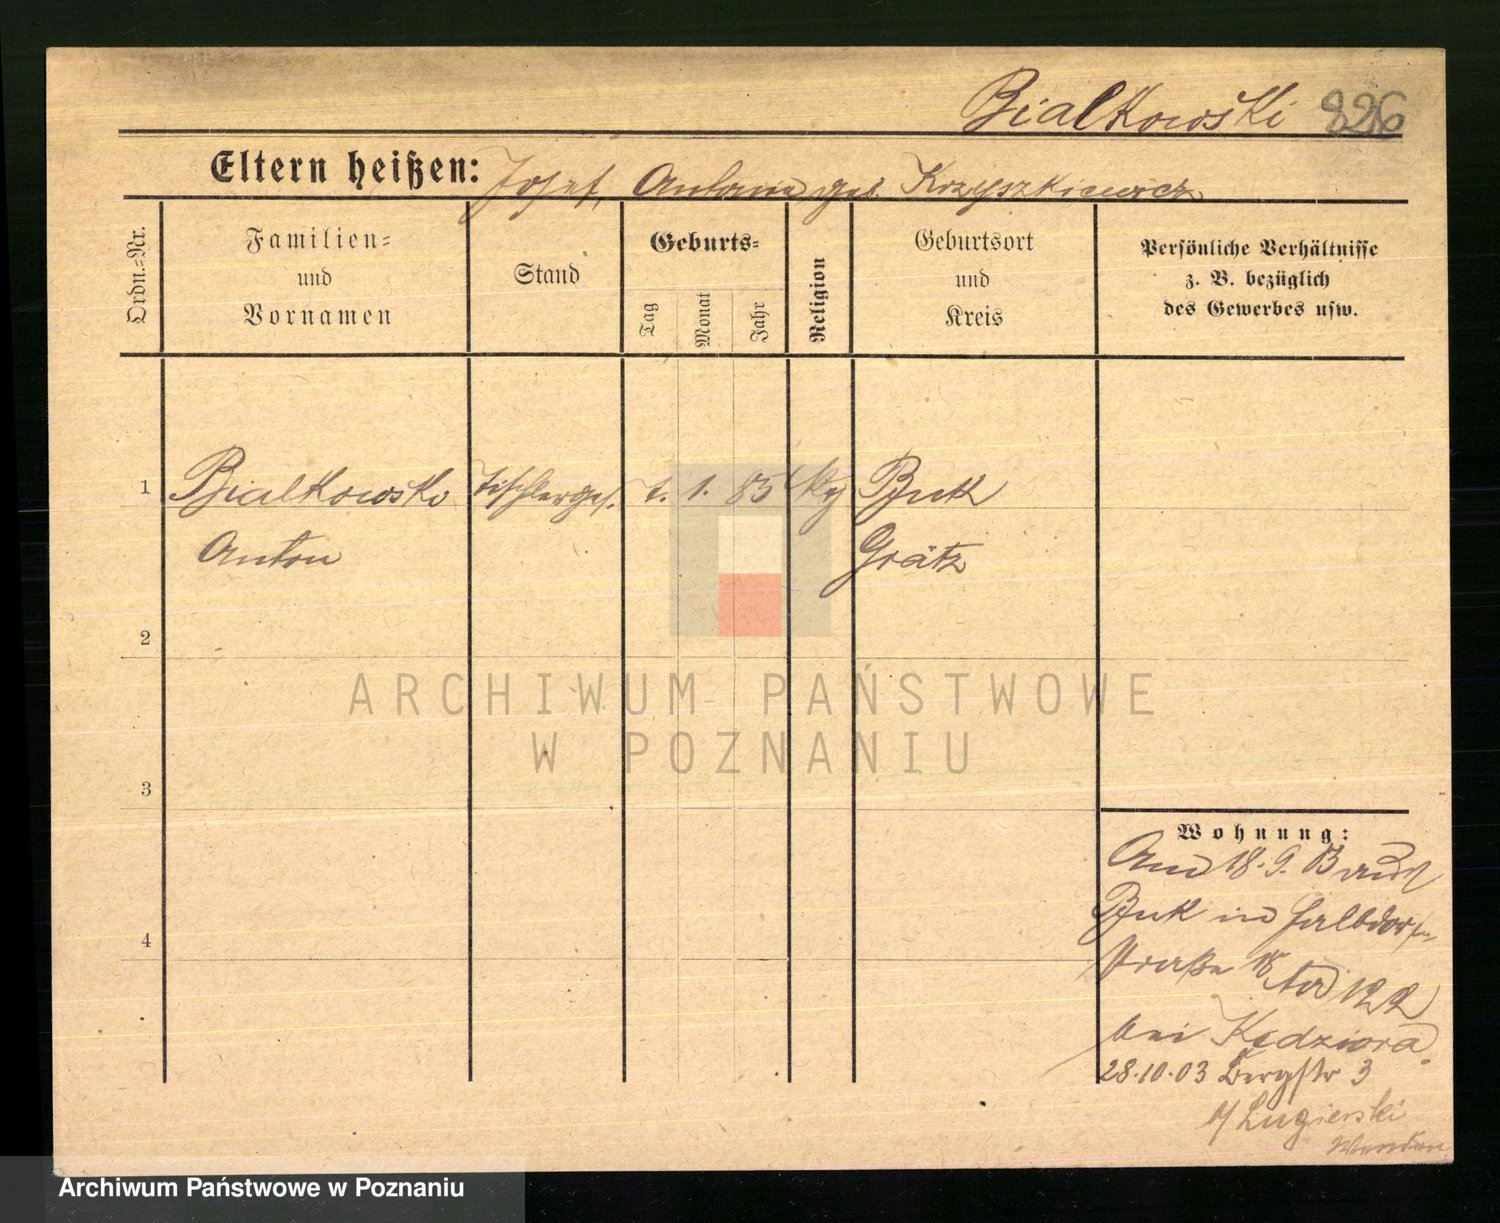 Bialkowski 826
Eltern heißen: Josef, Antonie geb. Krzyszkiewicz
Ordn.-Nr.
Familien-
und
Vornamen
Stand
Geburts-
Tag
Monat
Jahr
Religion
Geburtsort
und
Kreis
Persönliche Verhältnisse
z. B. bezüglich
des Gewerbes usw.
1 Bialkowski Tischlerges. 1. 85 Buk
Anton Grätz
2
3
4
Wohnung:
Am 18.9. aus
Buk in Halbdorf
straße 18
bei Kędziora.
28.10.03 Bergstr 3
b/ Lugierski
ARCHIWUM PAŃSTWOWE
W POZNANIU
Archiwum Państwowe w Poznaniu